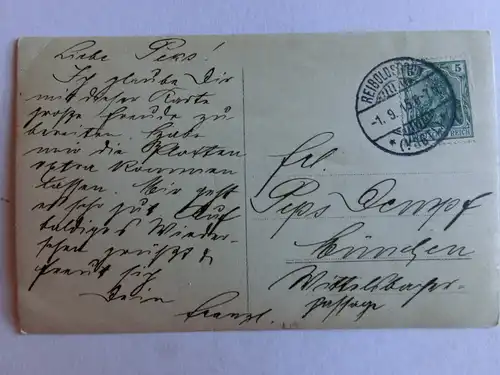 Liebe Peps!
Ich glaube Dir
mit dieser Karte
große Freude zu
bereiten. Habe
mir die Platten
extra kommen
lassen. Mir geht
es sehr gut. Auf
baldiges Wieder-
sehen grüßt &
freut sich
Dein
Franzl.
REIBOLDSGRÜN
-1.9.
5
REICH
Frl.
Peps Dempf
München
Wittelsbacher-
passage